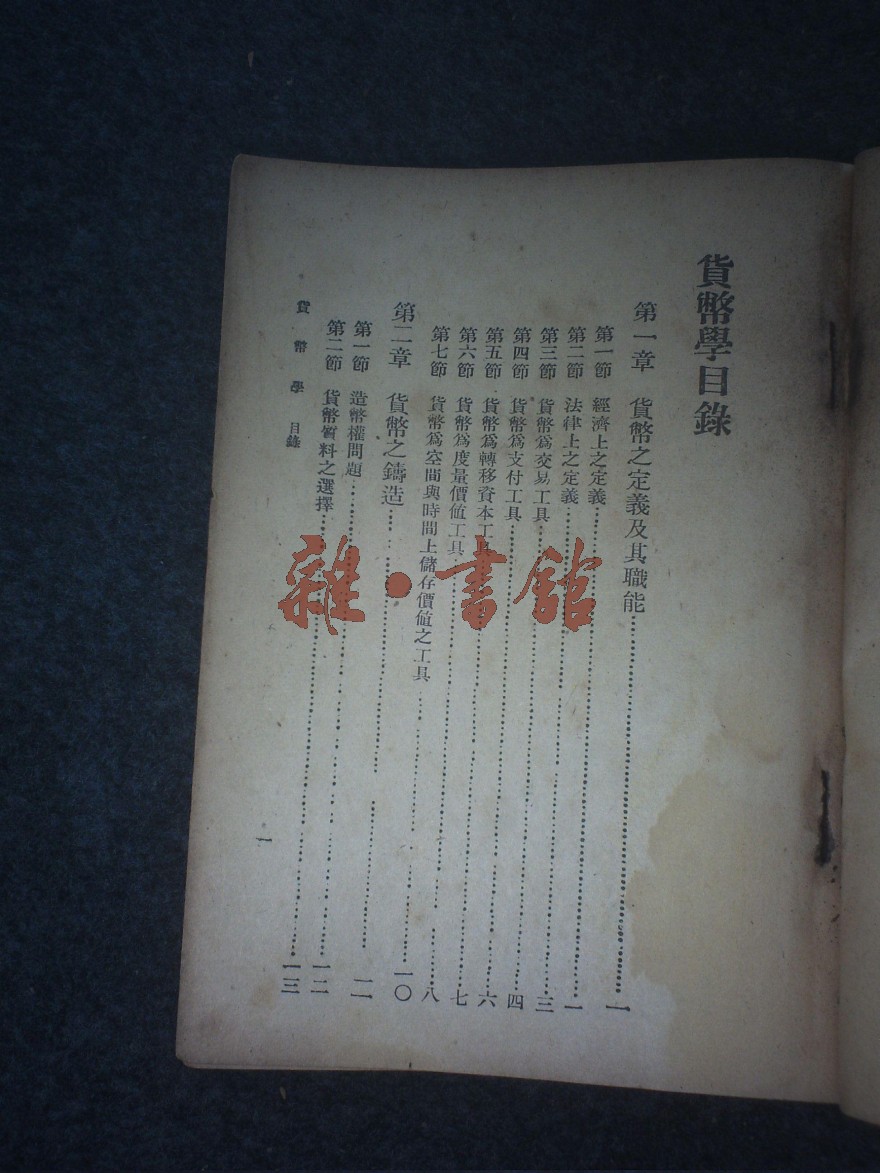 貨幣學目錄
第一章 貨幣之定義及其職能……一
第一節 經濟上之定義……一
第二節 法律上之定義……三
第三節 貨幣爲交易工具……四
第四節 貨幣爲支付工具……六
第五節 貨幣爲轉移資本工具……七
第六節 貨幣爲度量價值工具……八
第七節 貨幣爲空間與時間上儲存價值之工具……一〇
第二章 貨幣之鑄造……一一
第一節 造幣權問題……一二
第二節 貨幣質料之選擇……一三
貨幣學 目錄
一
雜·書館